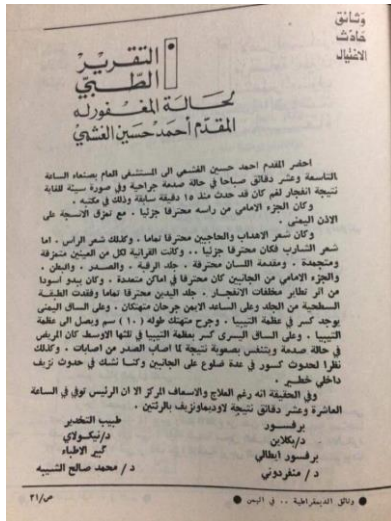 وثائق
حادث
الاغتيال
التقرير
الطبي
لحالة المغفورله
المقدم أحمد حسين الغشمي
احضر المقدم احمد حسين الغشمي الى المستشفى العام بصنعاء الساعة
التاسعة وعشر دقائق صباحا في حالة صدمة جراحية وفي صورة سيئة للغاية
نتيجة انفجار لغم كان قد حدث منذ ١٥ دقيقة سابقة وذلك في مكتبه .
وكان الجزء الامامي من راسه محترقا جزئيا . مع تمزق الانسجة على
الاذن اليمنى .
وكان شعر الاهداب والحاجبين محترقا تماما . وكذلك شعر الراس . اما
شعر الشارب فكان محترقا جزئيا .. وكانت القرانية لكل من العينين متمزقة
ومتجمدة . ومقدمة اللسان محترقة . جلد الرقبة - والصدر . والبطن .
والجزء الامامي من الجانبين كان محترقا في اماكن متعددة . وكان يبدو أسودا
من أثر تطاير مخلفات الانفجار . جلد اليدين محترقا تماما وفقدت الطبقة
السطحية من الجلد وعلى الساعد الايمن جرحان متهتكان . وعلى الساق اليمنى
يوجد كسر في عظمة التيبيا . وجرح متهتك طوله (١٠) سم ويصل الى عظمة
التيبيا . وعلى الساق اليسرى كسر بعظمة التيبيا في ثلثها الاوسط كان المريض
في حالة صدمة ويتنفس بصعوبة نتيجة لما اصاب الصدر من اصابات . وكذلك
نظرا لحدوث كسور في عدة ضلوع على الجانبين وكنا نشك في حدوث نزيف
داخلي خطير .
وفي الحقيقة انه رغم العلاج والاسعاف المركز الا ان الرئيس توفي في الساعة
العاشرة وعشر دقائق نتيجة لاوديماونزيف بالرئتين .
برفسور طبيب التخدير
د/بكلاين د/نيكولاي
برفسور ايطالي كبير الاطباء
د/ منفردوني د/ محمد صالح الشبيبه
وثائق الديمقراطية .. في اليمن ص/٣١